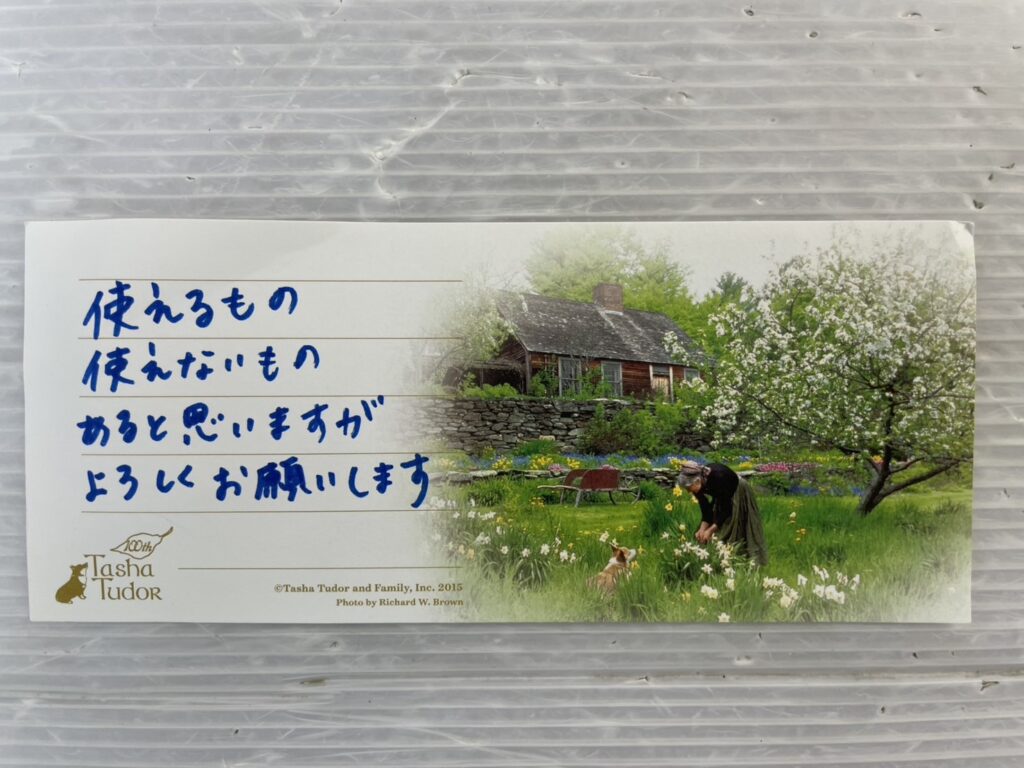 使えるもの
使えないもの
あると思いますが
よろしくお願いします
100th
Tasha
Tudor
©Tasha Tudor and Family, Inc. 2015
Photo by Richard W. Brown